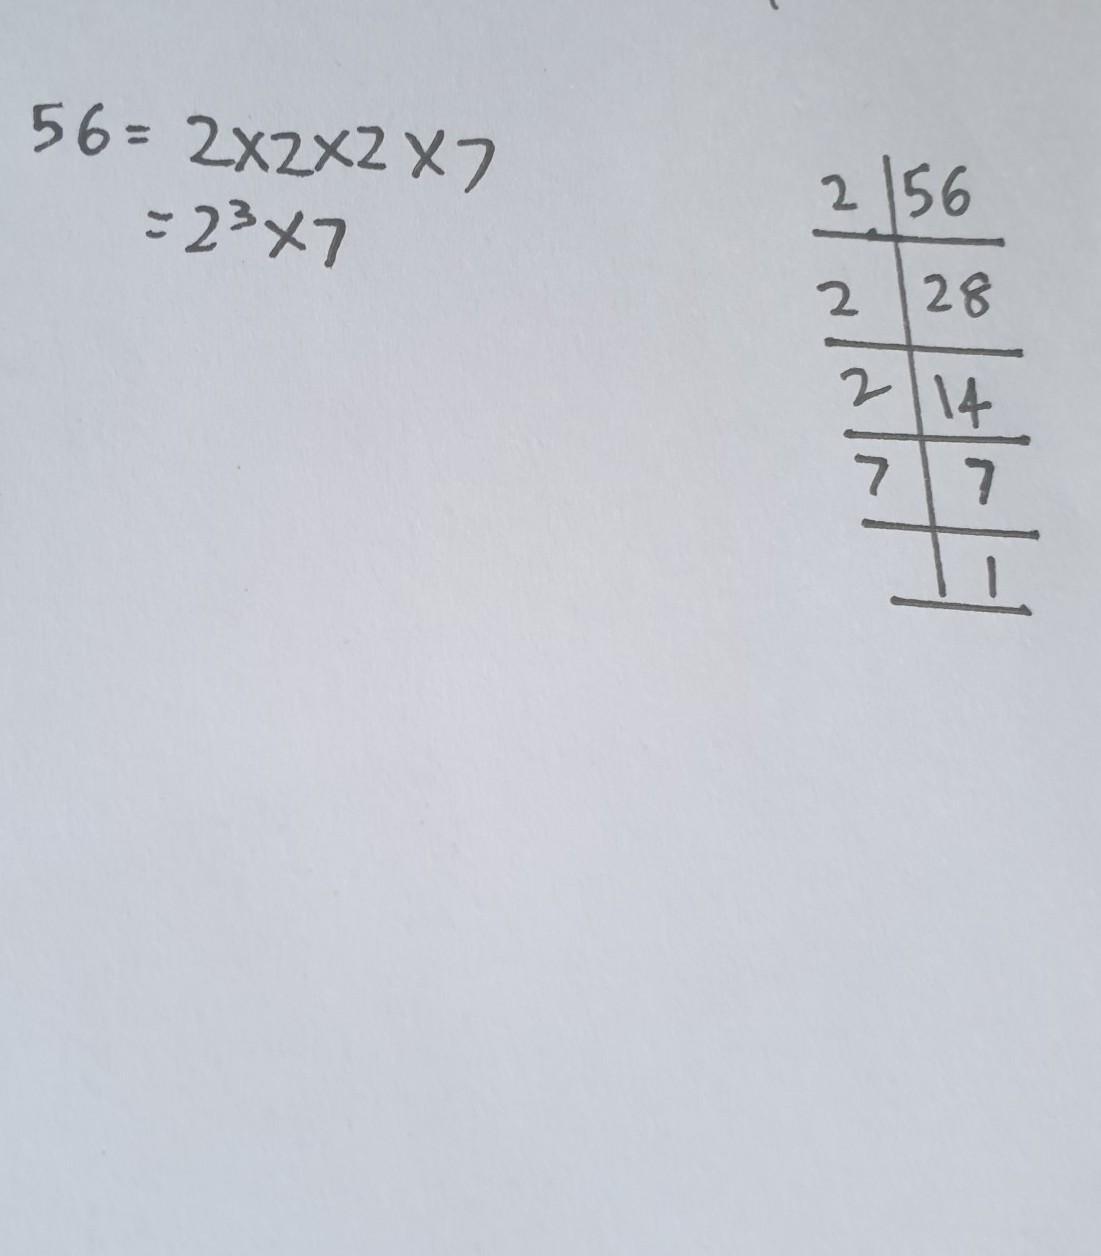 56 = 2×2×2×7
= 2³×7
2 | 56
2 | 28
2 | 14
7 | 7
| 1